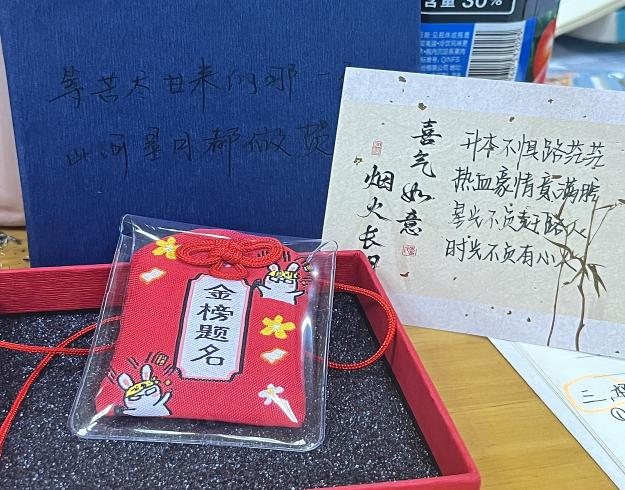 含量 30%
等苦尽甘来的那一
山河星月都做贺
喜气如意
烟火长
升本不惧路茫茫
热血豪情意满
星光不负赶路人
时光不负有心人
金榜题名
三